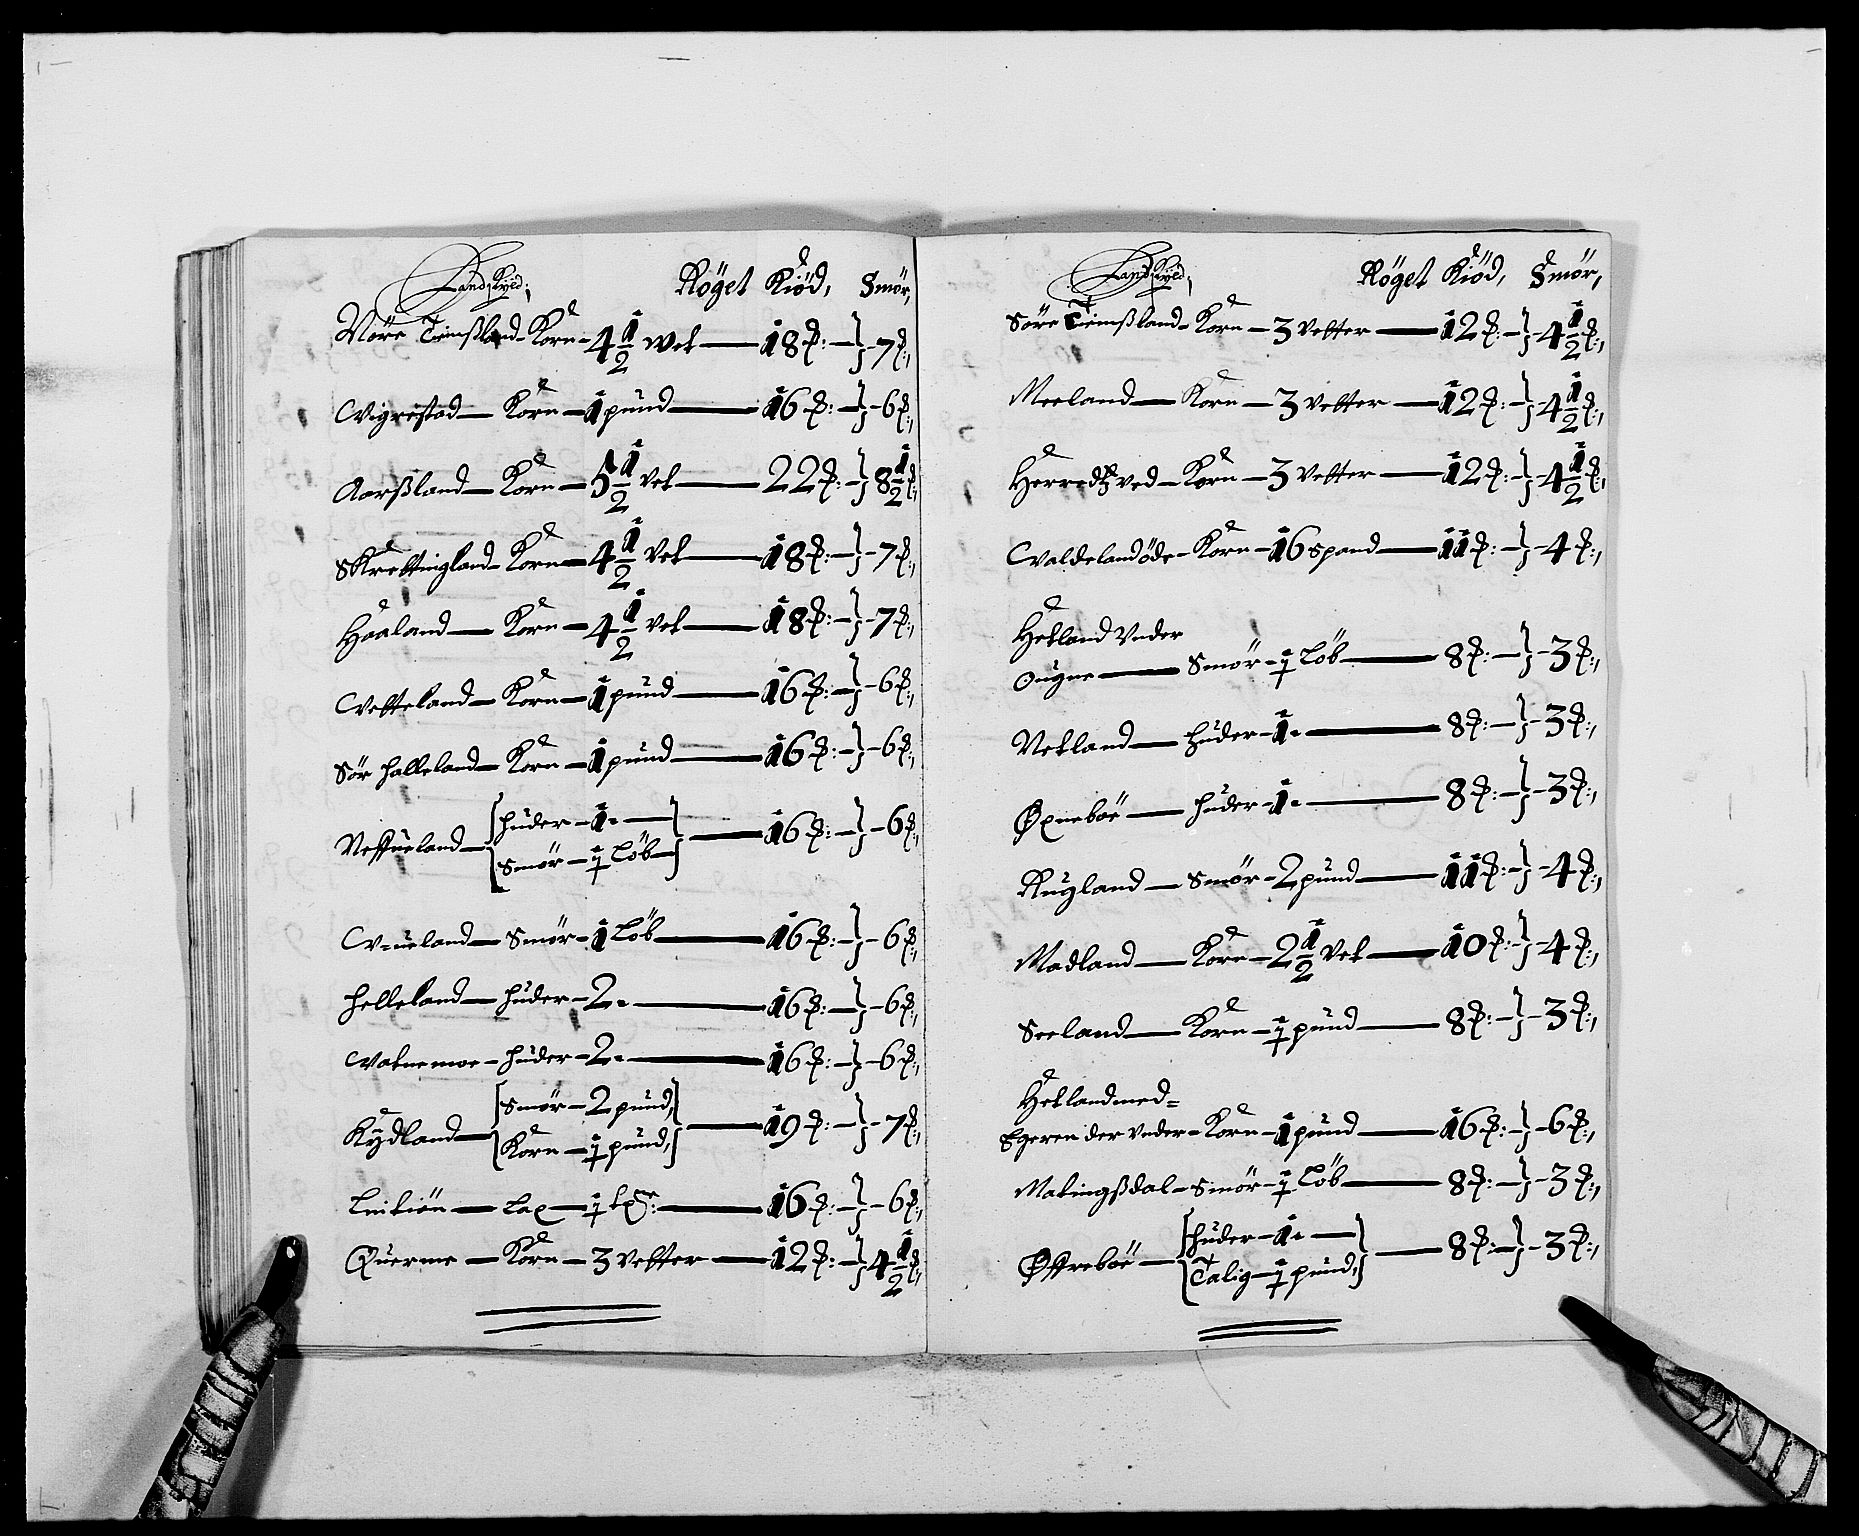 Landskyld; Röget Kiöd, Smör,
Nöre Tiemßland - Korn - 4 1/2 Wet — 18 ℔: — } 7 ℔:,
Wigrestad — Korn — 1 pund — 16 ℔: — } - 6 ℔:,
Aarßland — Korn — 5 1/2 Vet — 22 ℔: — } 8 1/2 ℔:,
Skrettingland - Korn — 4 1/2 Vet — 18 ℔: — } - 7 ℔:,
Haaland — Korn — 4 1/2 Vet — 18 ℔: — } - 7 ℔:,
Wetteland — Korn — 1 pund — 16 ℔: — } - 6 ℔:,
Sör halleland — Korn — 1 pund — 16 ℔: — } - 6 ℔:,
Neffueland — { huder — 1. — } — 16 ℔: — } - 6 ℔:,
{ Smör — ½ Löb — }
W-ueland — Smör — 1 Löb — 16 ℔: — } - 6 ℔:,
helleland — huder — 2. — 16 ℔: — } - 6 ℔:,
Watnemoe — huder — 2. — 16 ℔: — } - 6 ℔:,
Kydland — { Smör — 2 pund, } — 19 ℔: — } - 7 ℔:,
{ Korn — ½ pund, }
Lax — ½ — 16 ℔: — } - 6 ℔:,
Querme — Korn — 3 Vetter — 12 ℔: — } 4 1/2 ℔:,
Landskyld; Röget Kiöd, Smör,
Söre Tiemßland - Korn — 3 Vetter — 12 ℔: — } - 4 1/2 ℔:,
Meeland — Korn — 3 Vetter — 12 ℔: — } - 4 1/2 ℔:,
Herredtzved — Korn — 3 Vetter — 12 ℔: — } - 4 1/2 ℔:,
Waldelandöde - Korn — 16 Spand — 11 ℔: — } - 4 ℔:,
Hetland Vnder
Ougne — Smör — ½ Löb — 8 ℔: — } - 3 ℔:,
Netland — huder — 1. — 8 ℔: — } - 3 ℔:,
Øxneböe — huder — 1. — 8 ℔: — } - 3 ℔:,
Rugland — Smör — 2 pund — 11 ℔: — } - 4 ℔:,
Madland — Korn — 2 1/2 Vet — 10 ℔: — } - 4 ℔:,
Seeland — Korn — ½ pund — 8 ℔: — } - 3 ℔:,
Hetland med=
Egeren der Vnder - Korn — 1 pund — 16 ℔: — } - 6 ℔:,
Matingßdal — Smör — ½ Löb — 8 ℔: — } - 3 ℔:,
Øffreböe — { huder — 1. — } — 8 ℔: — } - 3 ℔:,
{ Talig — ½ pund, }